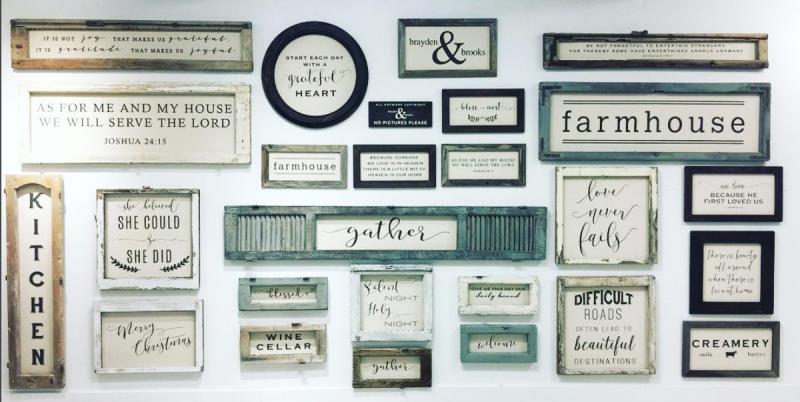 IT IS NOT JOY THAT MAKES US grateful
IT IS gratitude THAT MAKES US joyful
START EACH DAY
WITH A
grateful
HEART
brayden
&
brooks
BE NOT FORGETFUL TO ENTERTAIN STRANGERS
FOR THEREBY SOME HAVE ENTERTAINED ANGELS UNAWARE
AS FOR ME AND MY HOUSE
WE WILL SERVE THE LORD
JOSHUA 24:15
ALL ARTWORK COPYRIGHT
&
NO PICTURES PLEASE
bless our nest
farmhouse
farmhouse
BECAUSE SOMEONE
WE LOVE IS IN HEAVEN
THERE IS A LITTLE BIT OF
HEAVEN IN OUR HOME
AS FOR ME AND MY HOUSE
WE WILL SERVE THE LORD
KITCHEN
she believed
SHE COULD
So
SHE DID
gather
love
never
fails
we love
BECAUSE HE
FIRST LOVED US
There is beauty
all around
when there is
love at home
blessed
Silent
NIGHT
Holy
NIGHT
GIVE US THIS DAY OUR
daily bread
DIFFICULT
ROADS
OFTEN LEAD TO
beautiful
DESTINATIONS
Merry
Christmas
WINE
CELLAR
gather
welcome
CREAMERY
milk
butter